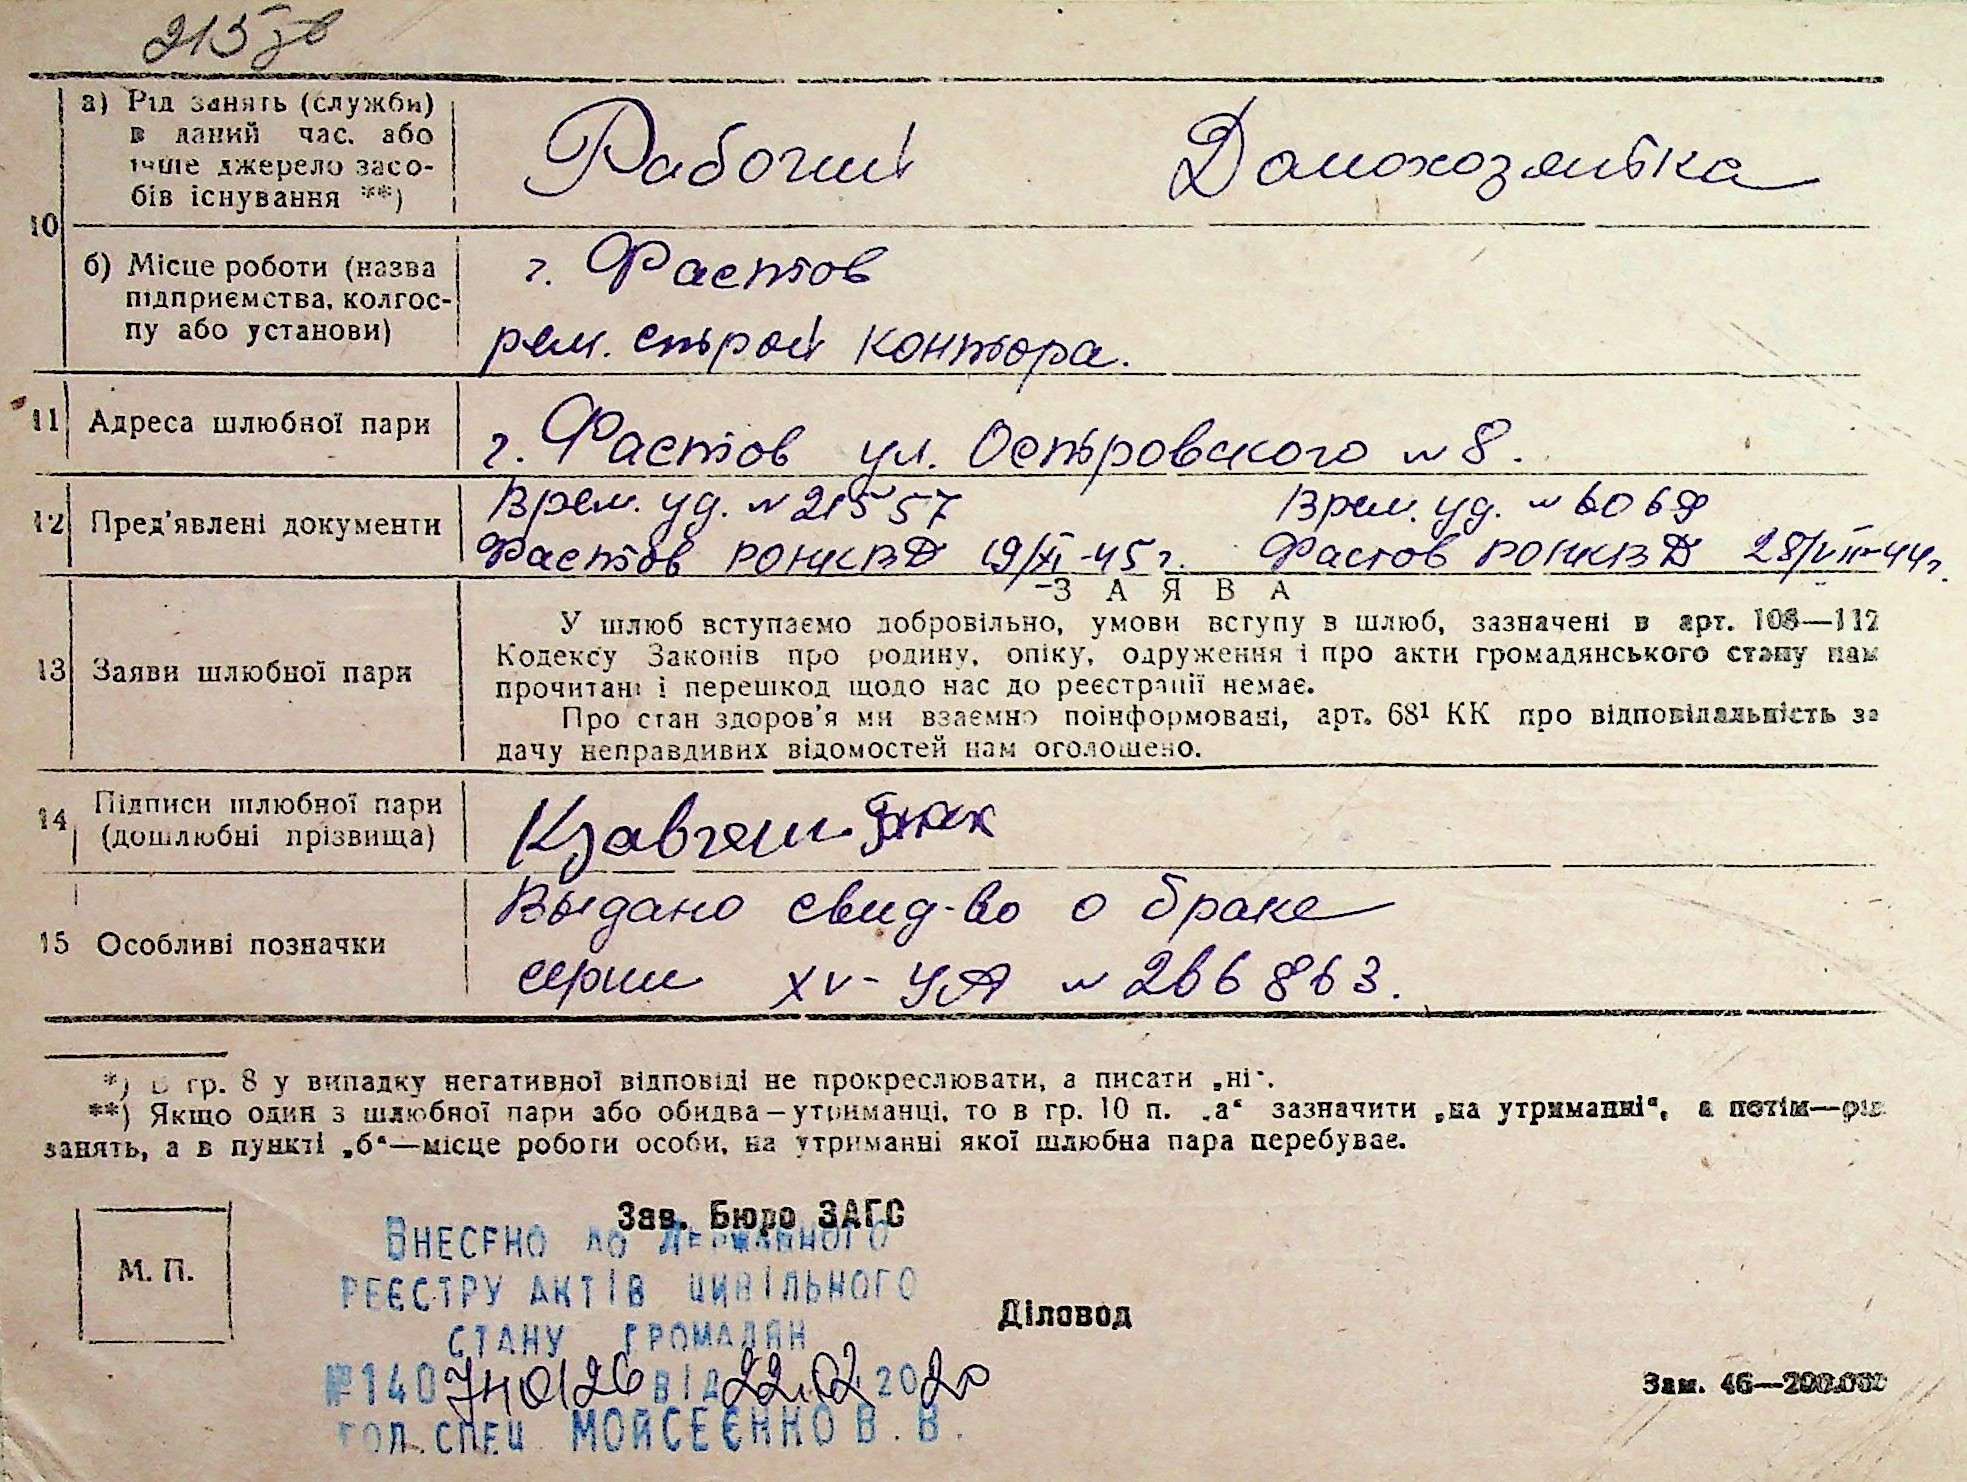 215 зв
10
а) Рід занять (служби)
в даний час. або
інше джерело засо-
бів існування **)
Рабочий Домохозяйка
б) Місце роботи (назва
підприємства, колгос-
пу або установи)
г. Фастов
рем. строй контора.
11 Адреса шлюбної пари
г. Фастов ул. Островского № 8.
12 Пред'явлені документи
Врем. уд. № 21557 Врем. уд. № 6069
Фастов РОНКВД 19/XI-45 г. Фастов РОНКВД 28/VIII-44 г.
13 Заяви шлюбної пари
З А Я В А
У шлюб вступаємо добровільно, умови вступу в шлюб, зазначені в арт. 108—112
Кодексу Законів про родину, опіку, одруження і про акти громадянського стану нам
прочитані і перешкод щодо нас до реєстрації немає.
Про стан здоров'я ми взаємно поінформовані, арт. 68¹ КК про відповідальність за
дачу неправдивих відомостей нам оголошено.
14 Підписи шлюбної пари
(дошлюбні прізвища)
15 Особливі позначки
Выдано свид-во о браке
серии XV-УА № 266863.
*) В гр. 8 у випадку негативної відповіді не прокреслювати, а писати „ні".
**) Якщо один з шлюбної пари або обидва—утриманці, то в гр. 10 п. „а" зазначити „на утриманні", а потім—рід
занять, а в пункті „б"—місце роботи особи, на утриманні якої шлюбна пара перебуває.
Зав. Бюро ЗАГС
М. П.
ВНЕСЕНО ДО ДЕРЖАВНОГО
РЕЄСТРУ АКТІВ ЦИВІЛЬНОГО
СТАНУ ГРОМАДЯН
Діловод
№ 140740126 від 22.02 2020
Зам. 46—200.000
ГОЛ. СПЕЦ МОЙСЕЄНКО В. В.